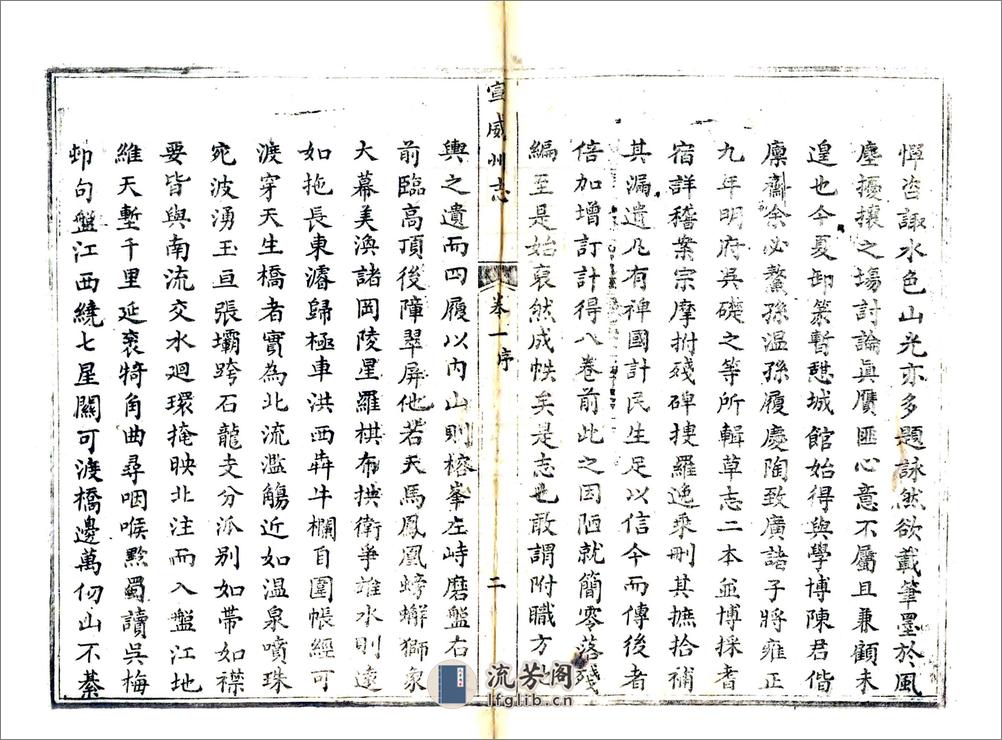 憚咨諏水色山光亦多題詠然欲載筆墨於風
塵擾攘之場討論眞贋匪心意不屬且兼顧未
遑也今夏卸篆暫憇城館始得與學博陳君偕
廩齋余必鰲孫温孫履慶陶致廣諸子將雍正
九年明府吳礎之等所輯草志二本並博採耆
宿詳稽案宗摩拊殘碑搜羅逸乘刪其摭拾補
其漏遺凡有裨國計民生足以信今而傳後者
倍加增訂計得八卷前此之因陋就簡零落殘
編至是始裒然成帙矣是志也敢謂附職方
宣威州志
卷一序
二
輿之遺而四履以内山則榕峯左峙磨盤右
前臨高頂後障翠屏他若天馬鳳凰螃蠏獅象
大幕美渙諸岡陵星羅棋布拱衛爭雄水則逺
如拖長東濬歸極車洪西犇牛欄自圍帳經可
渡穿天生橋者實為北流濫觴近如温泉噴珠
宛波湧玉亘張壩跨石龍支分派别如帶如襟
要皆與南流交水迴環掩映北注而入盤江地
維天塹千里延袤犄角曲尋咽喉黔蜀讀吳梅
邨句盤江西繞七星關可渡橋邊萬仞山不綦
流芳阁
lfglib.cn